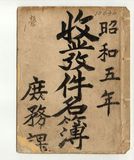 昭和五年
收發件名簿
庶務課